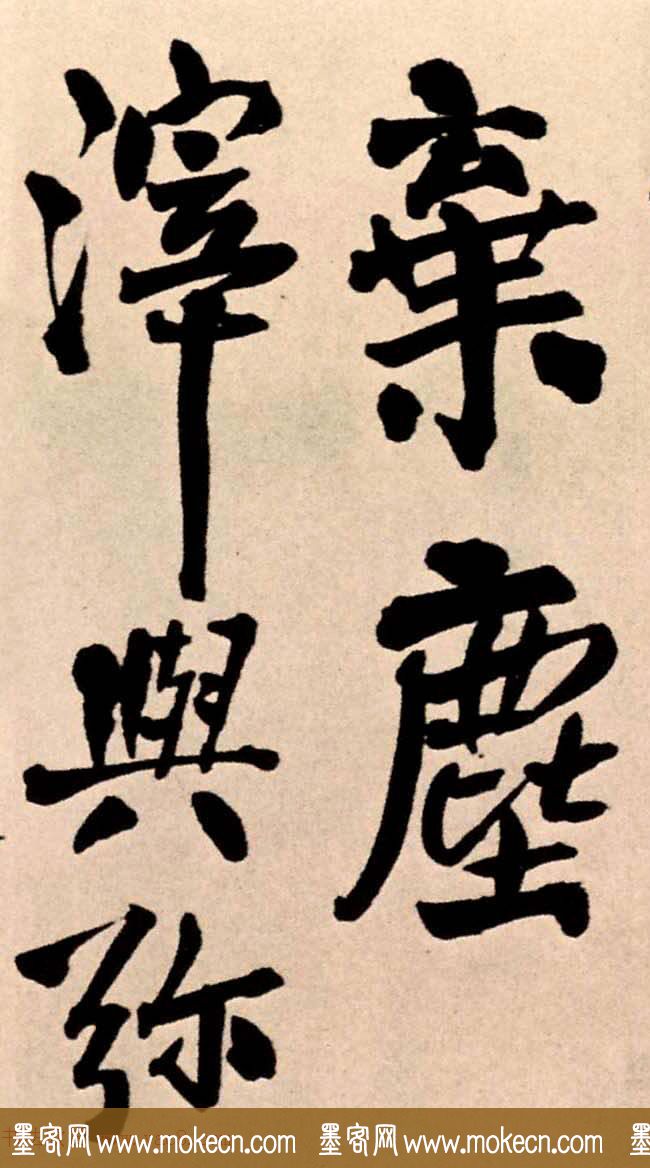 棄塵
滓與弥
墨客网 www.mokecn.com 墨客网 www.mokecn.com